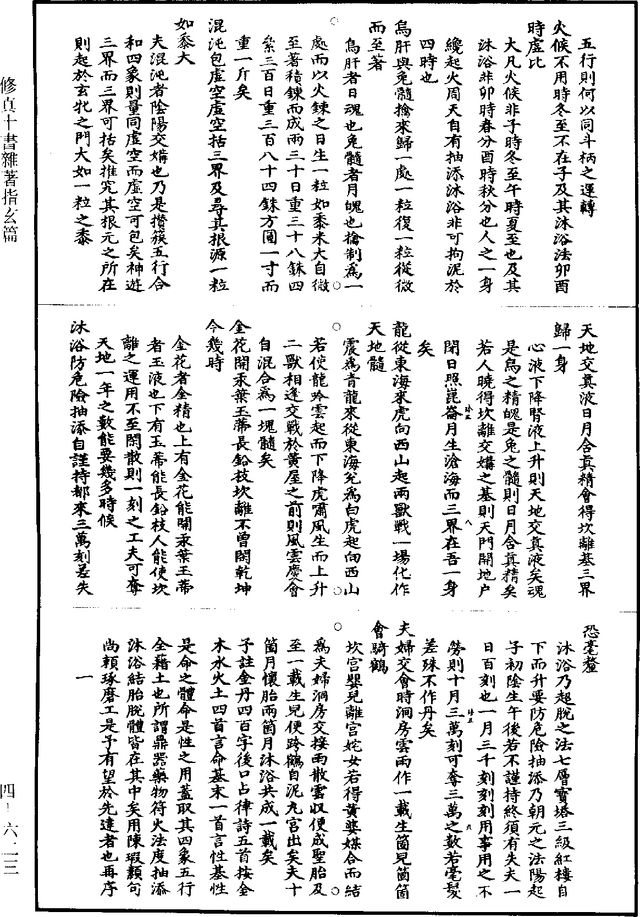 五行則何以同斗柄之運轉
火候不用時冬至不在子及其沐浴法卯酉
時虛比
大凡火候非子時冬至午時夏至也及其
沐浴非卯時春分酉時秋分也人之一身
纔起火周天自有抽添沐浴非可拘泥於
四時也
烏肝與兔髓擒來歸一處一粒復一粒從微
而至著
烏肝者日魂也兔髓者月魄也擒制爲一
處而以火鍊之日生一粒如黍米大自微
至著積鍊而成兩三十日重三十八銖四
絫三百日重三百八十四銖方圓一寸而
重一斤矣
混沌包虛空虛空括三界及尋其根源一粒
如黍大
夫混沌者陰陽交媾也乃是攅簇五行合
和四象則量同虛空而虛空可包矣神遊
三界而三界可括矣推究其根元之所在
則起於玄牝之門大如一粒之黍
天地交真液日月含真精會得坎離基三界
歸一身
心液下降腎液上升則天地交真液矣魂
是烏之精魄是兔之髓則日月含真精矣
若人曉得坎離交媾之基則天門開地户
閉日照崑崙月生滄海而三界在吾一身
矣
龍從東海來虎向西山起兩獸戰一場化作
天地髓
震爲青龍來從東海兊爲白虎起向西山
若使龍吟雲起而下降虎嘯風生而上升
二獸相逢交戰於黄屋之前則風雲慶會
自混合爲一塊髓矣
金花開汞葉玉蒂長鉛枝坎離不曾閑乾坤
今幾時
金花者金精也上有金花能開汞葉玉蒂
者玉液也下有玉蒂能長鉛枝人能使坎
離之運用不至閑散則一刻之工夫可奪
天地一年之數能要幾多時候
沐浴防危險抽添自謹持都來三萬刻差失
恐毫釐
沐浴乃超脫之法七層寶塔三級紅樓自
下而升要防危險抽添乃朝元之法陽起
子初陰生午後若不謹持終須有失夫一
日百刻也一月三千刻刻刻用事用之不
勞則十月三萬刻可奪三萬之數若毫髮
差殊不作丹矣
夫婦交會時洞房雲雨作一載生箇兒箇箇
會騎鶴
坎宫嬰兒離宫姹女若得黄婆媒合而結
爲夫婦洞房交接雨散雲収便成聖胎及
至一載生兒便跨鶴自泥丸宫出矣夫十
箇月懷胎兩箇月沐浴共成一載矣
子註金丹四百字後口占律詩五首按金
木水火土四首言命基末一首言性基性
是命之體命是性之用蓋取其四象五行
全藉土也所謂鼎器藥物符火法度抽添
沐浴結胎脫體皆在其中矣用陳瑕纇句
尚賴琢磨工是予有望於先達者也再序
一
修真十書雜著指玄篇
四—六二三